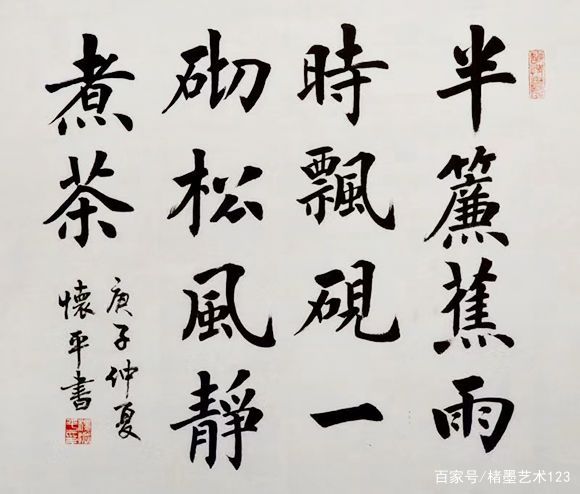 半簾蕉雨
時飄硯一
砌松風靜
煮茶
庚子仲夏
懷平書
百家号/楮墨艺术123